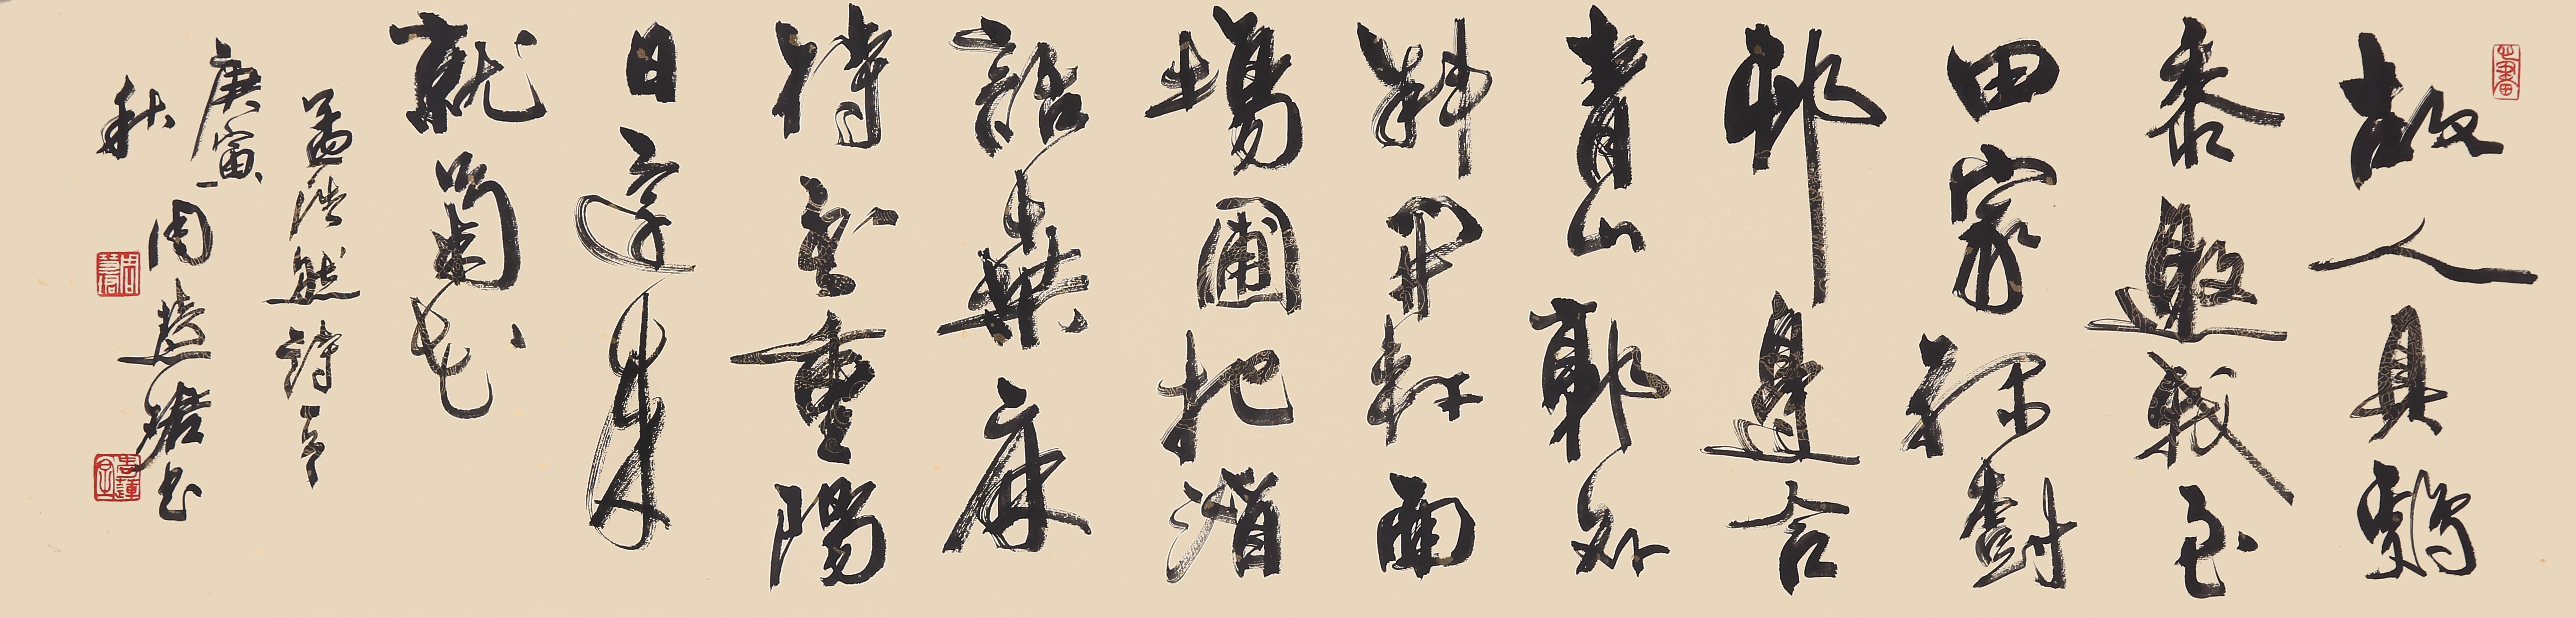 故人具鷄
黍邀我至
田家緑樹
邨邊合
青山郭外
斜開軒面
場圃把酒
話桒麻
待到重陽
日還來
就菊花
孟浩然詩
庚寅
秋
周慧珺书